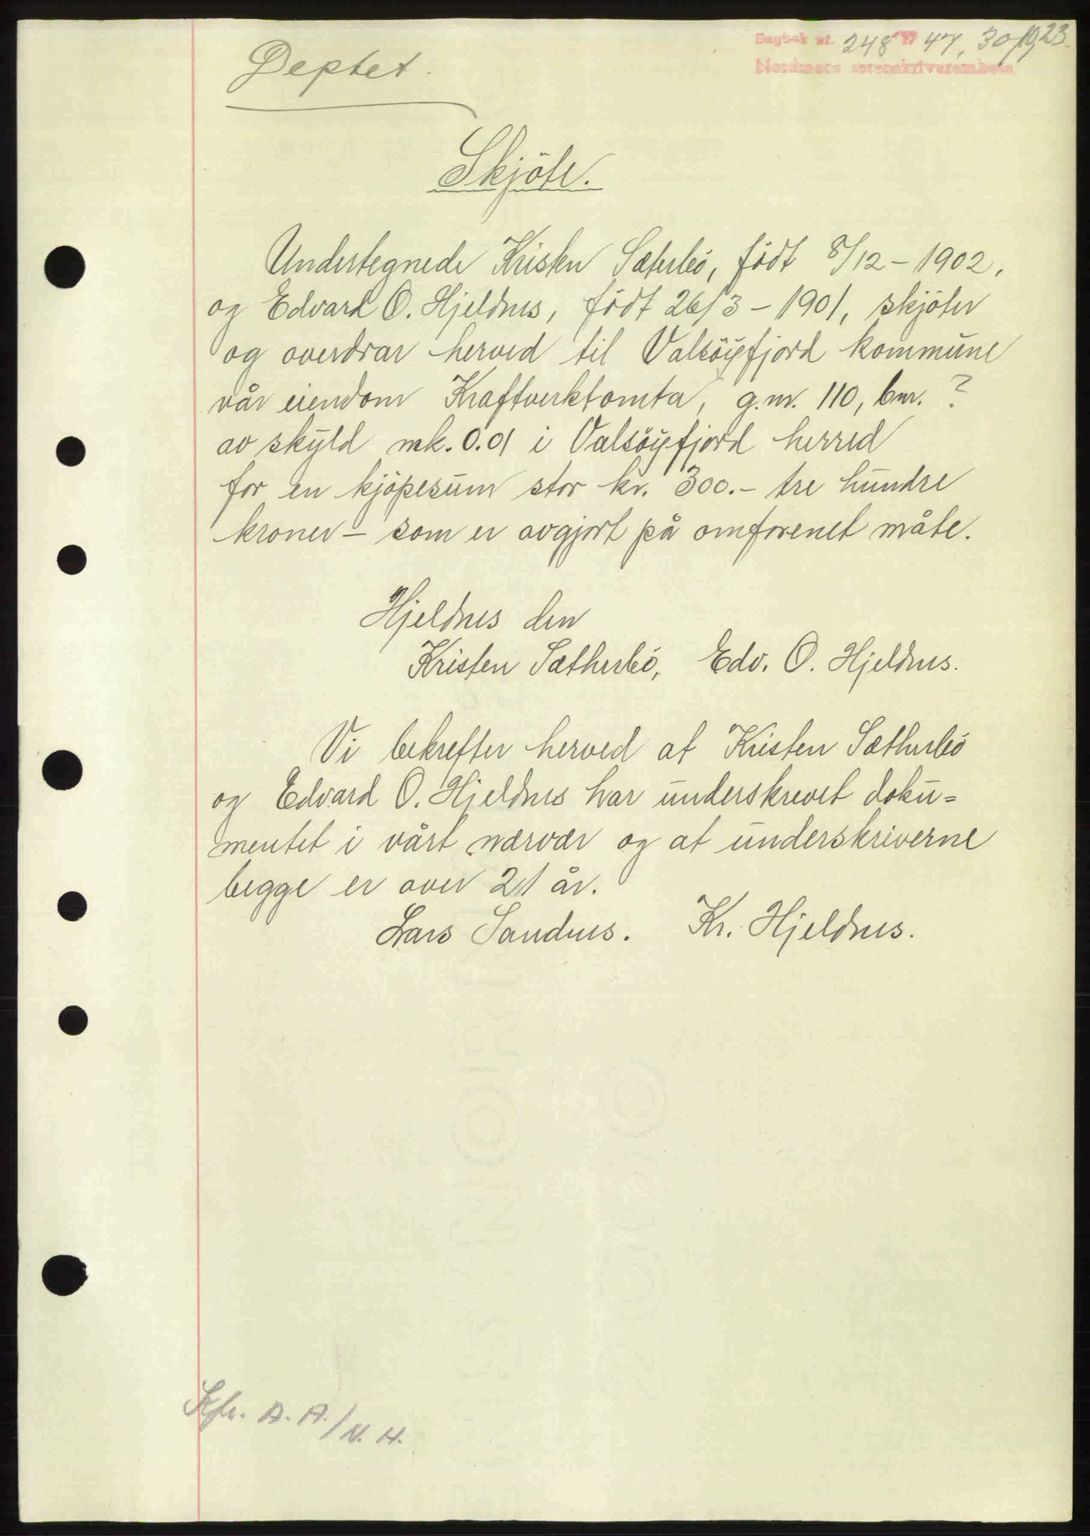 Dagbok nr. 248 47, 30/10, 23.
Nordmøre sorenskriverembete
Deptet.
Skjöte.
Undertegnede Kristen Sæterbö, född 8/12 - 1902,
og Edvard O. Hjeldnes, född 26/3 - 1901, skjöter
og overdrar herved til Valsöyfjord kommune
vår eiendom Kraftverktomta, g.nr. 110, bnr. ?
av skyld mk. 0.01 i Valsöyfjord herred
for en kjöpesum stor kr. 300.- tre hundre
kroner - som er avgjort på omforenet måte.
Hjeldnes den
Kristen Sætherbö, Edv. O. Hjeldnes.
Vi bekrefter herved at Kristen Sætherbö
og Edvard O. Hjeldnes har underskrevet doku=
mentet i vårt nærvær og at underskriverne
begge er over 21 år.
Lars Sandnes. Kr. Hjeldnes.
Kfr. A. A./N. H.